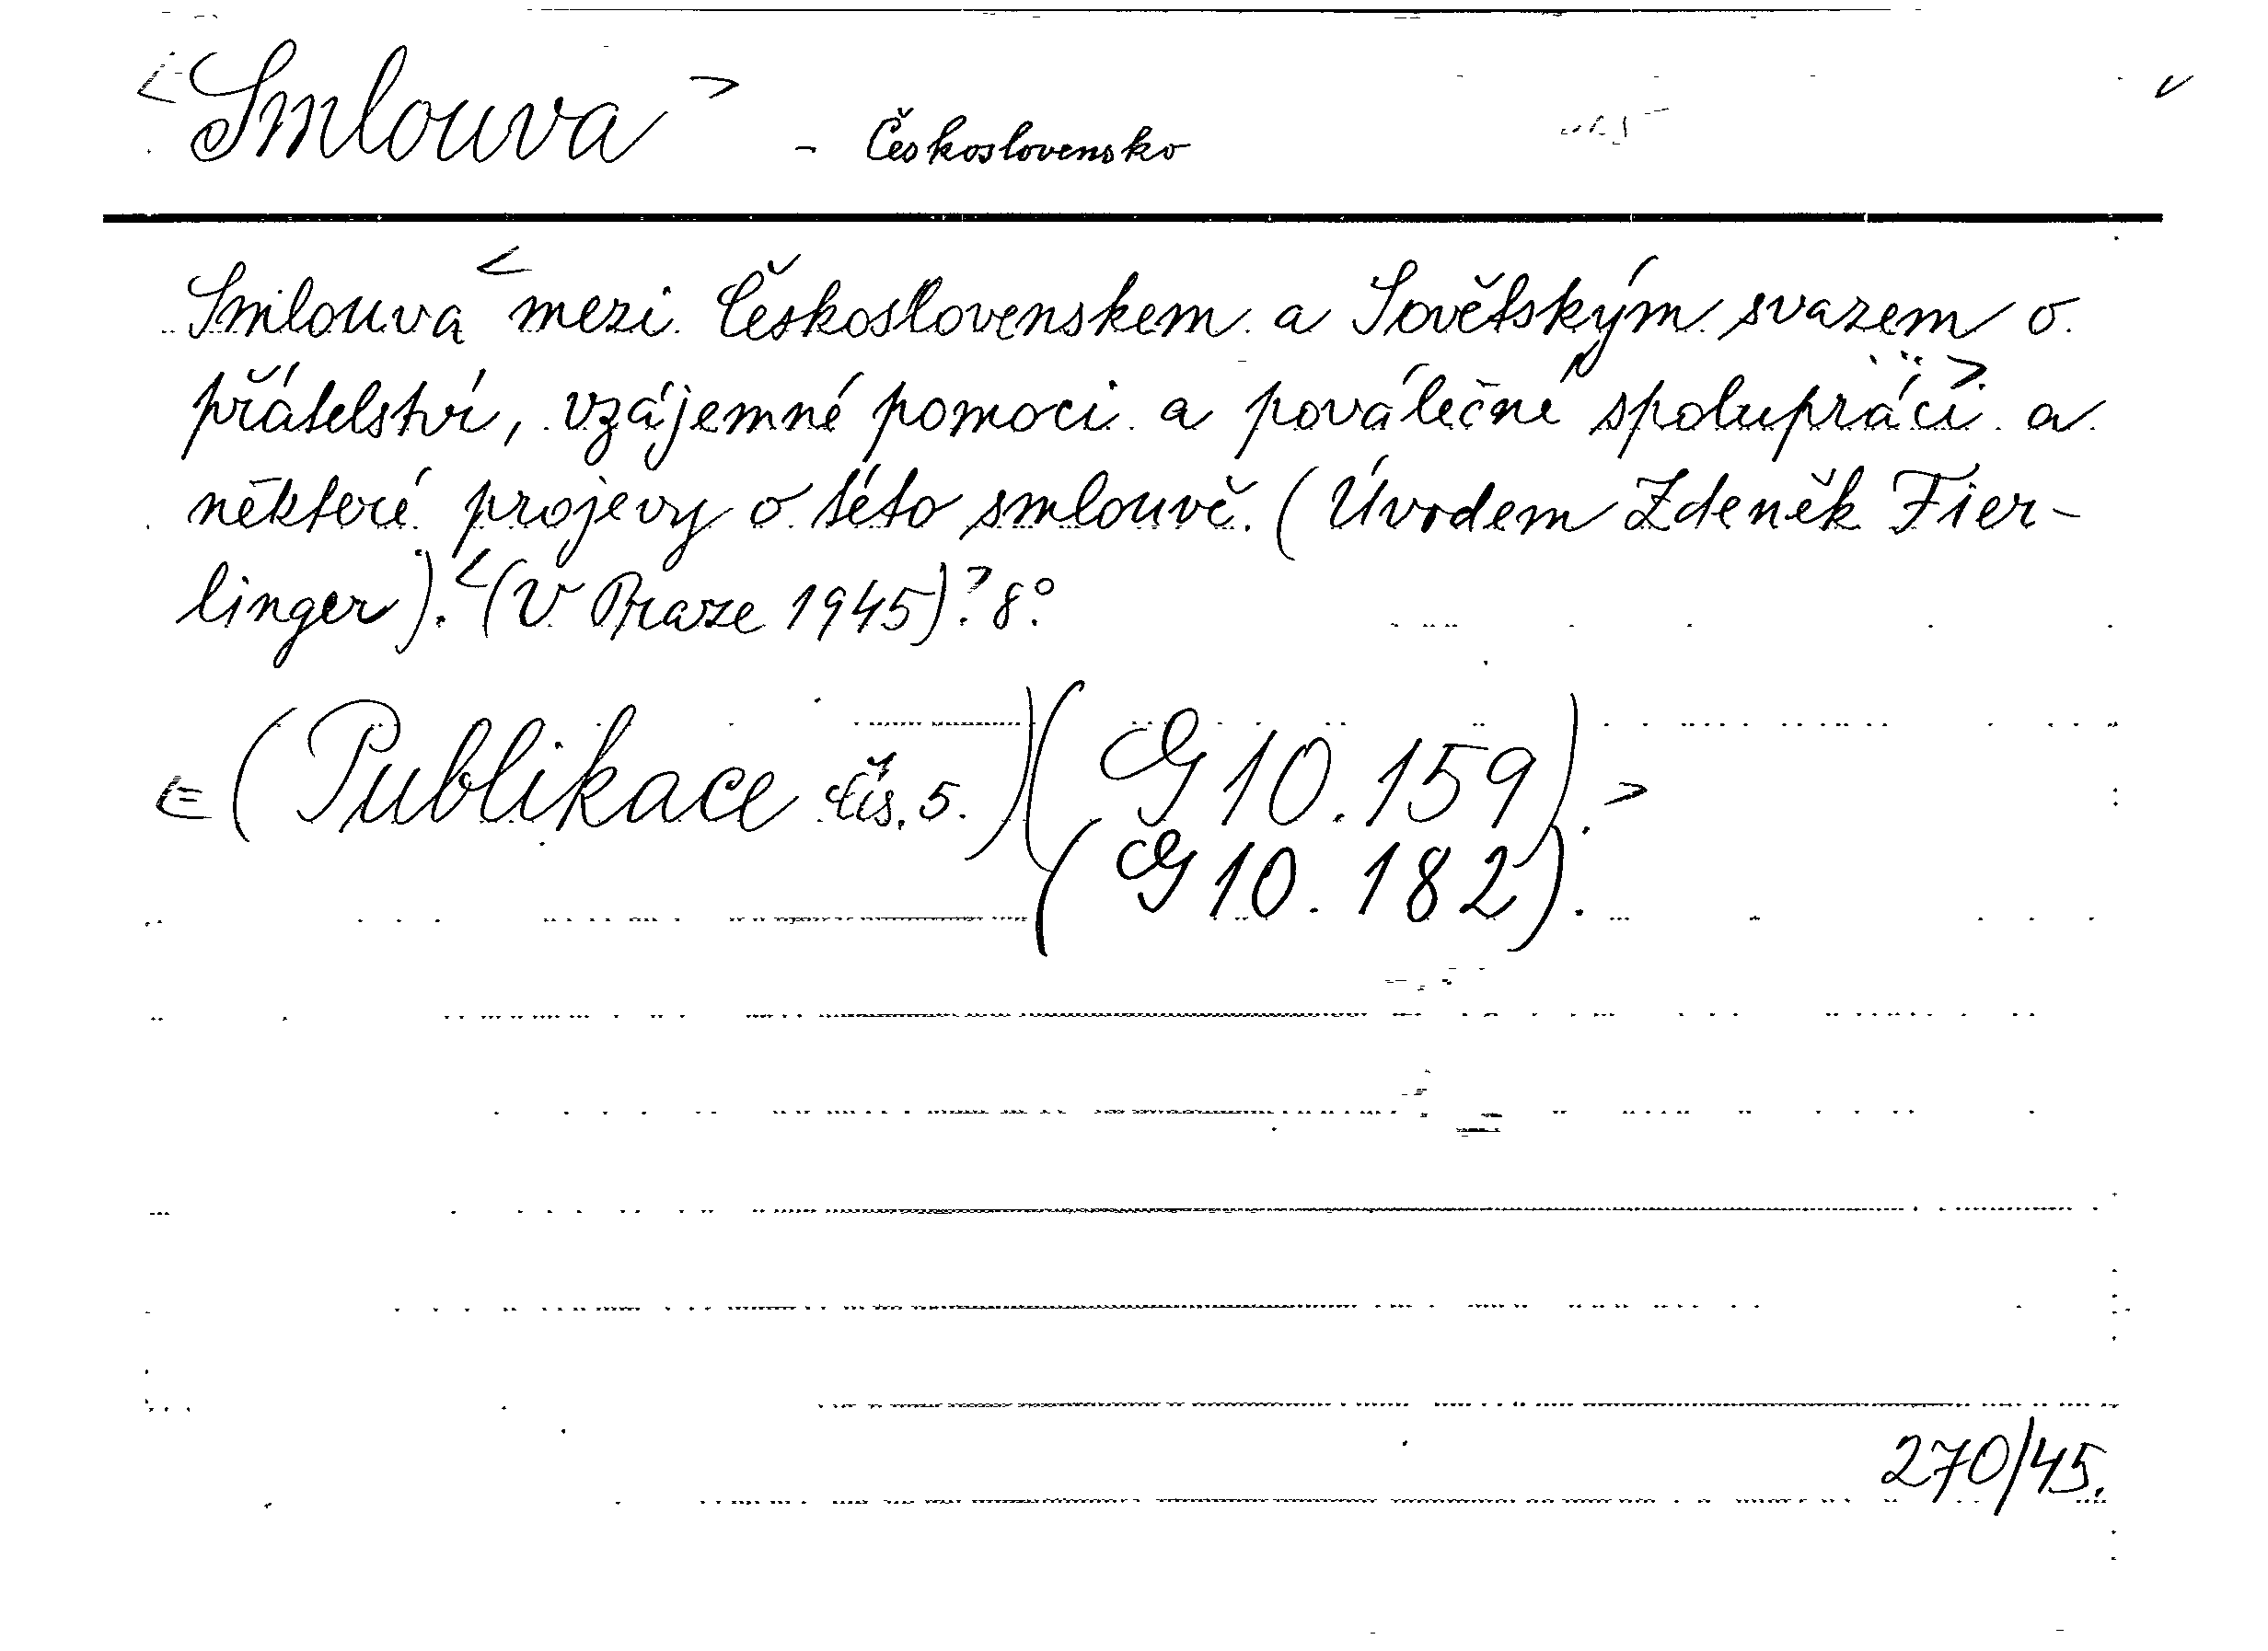 <Smlouva> - Československo
Smlouva <mezi Československem a Sovětským svazem o
přátelství, vzájemné pomoci a poválečné spolupráci> a
některé projevy o této smlouvě. (Úvodem Zdeněk Fier-
linger). <(V Praze 1945)>. 8°.
<= (Publikace čís. 5.) (G 10.159).>
(G 10.182).
270/45.